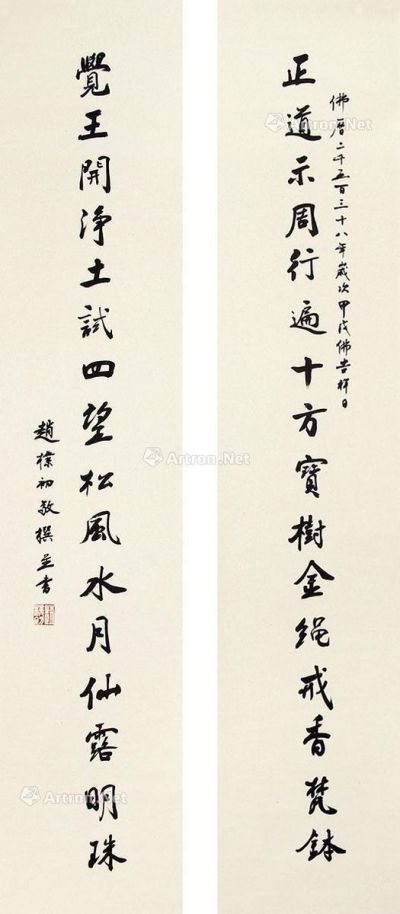 佛曆二千五百三十八年歲次甲戌佛吉祥日
正道示周行遍十方寶樹金繩戒香梵鉢
覺王開淨土試四望松風水月仙露明珠
趙樸初敬撰並書
Artron.Net
Artron.Net
Artron.Net
Artron.Net